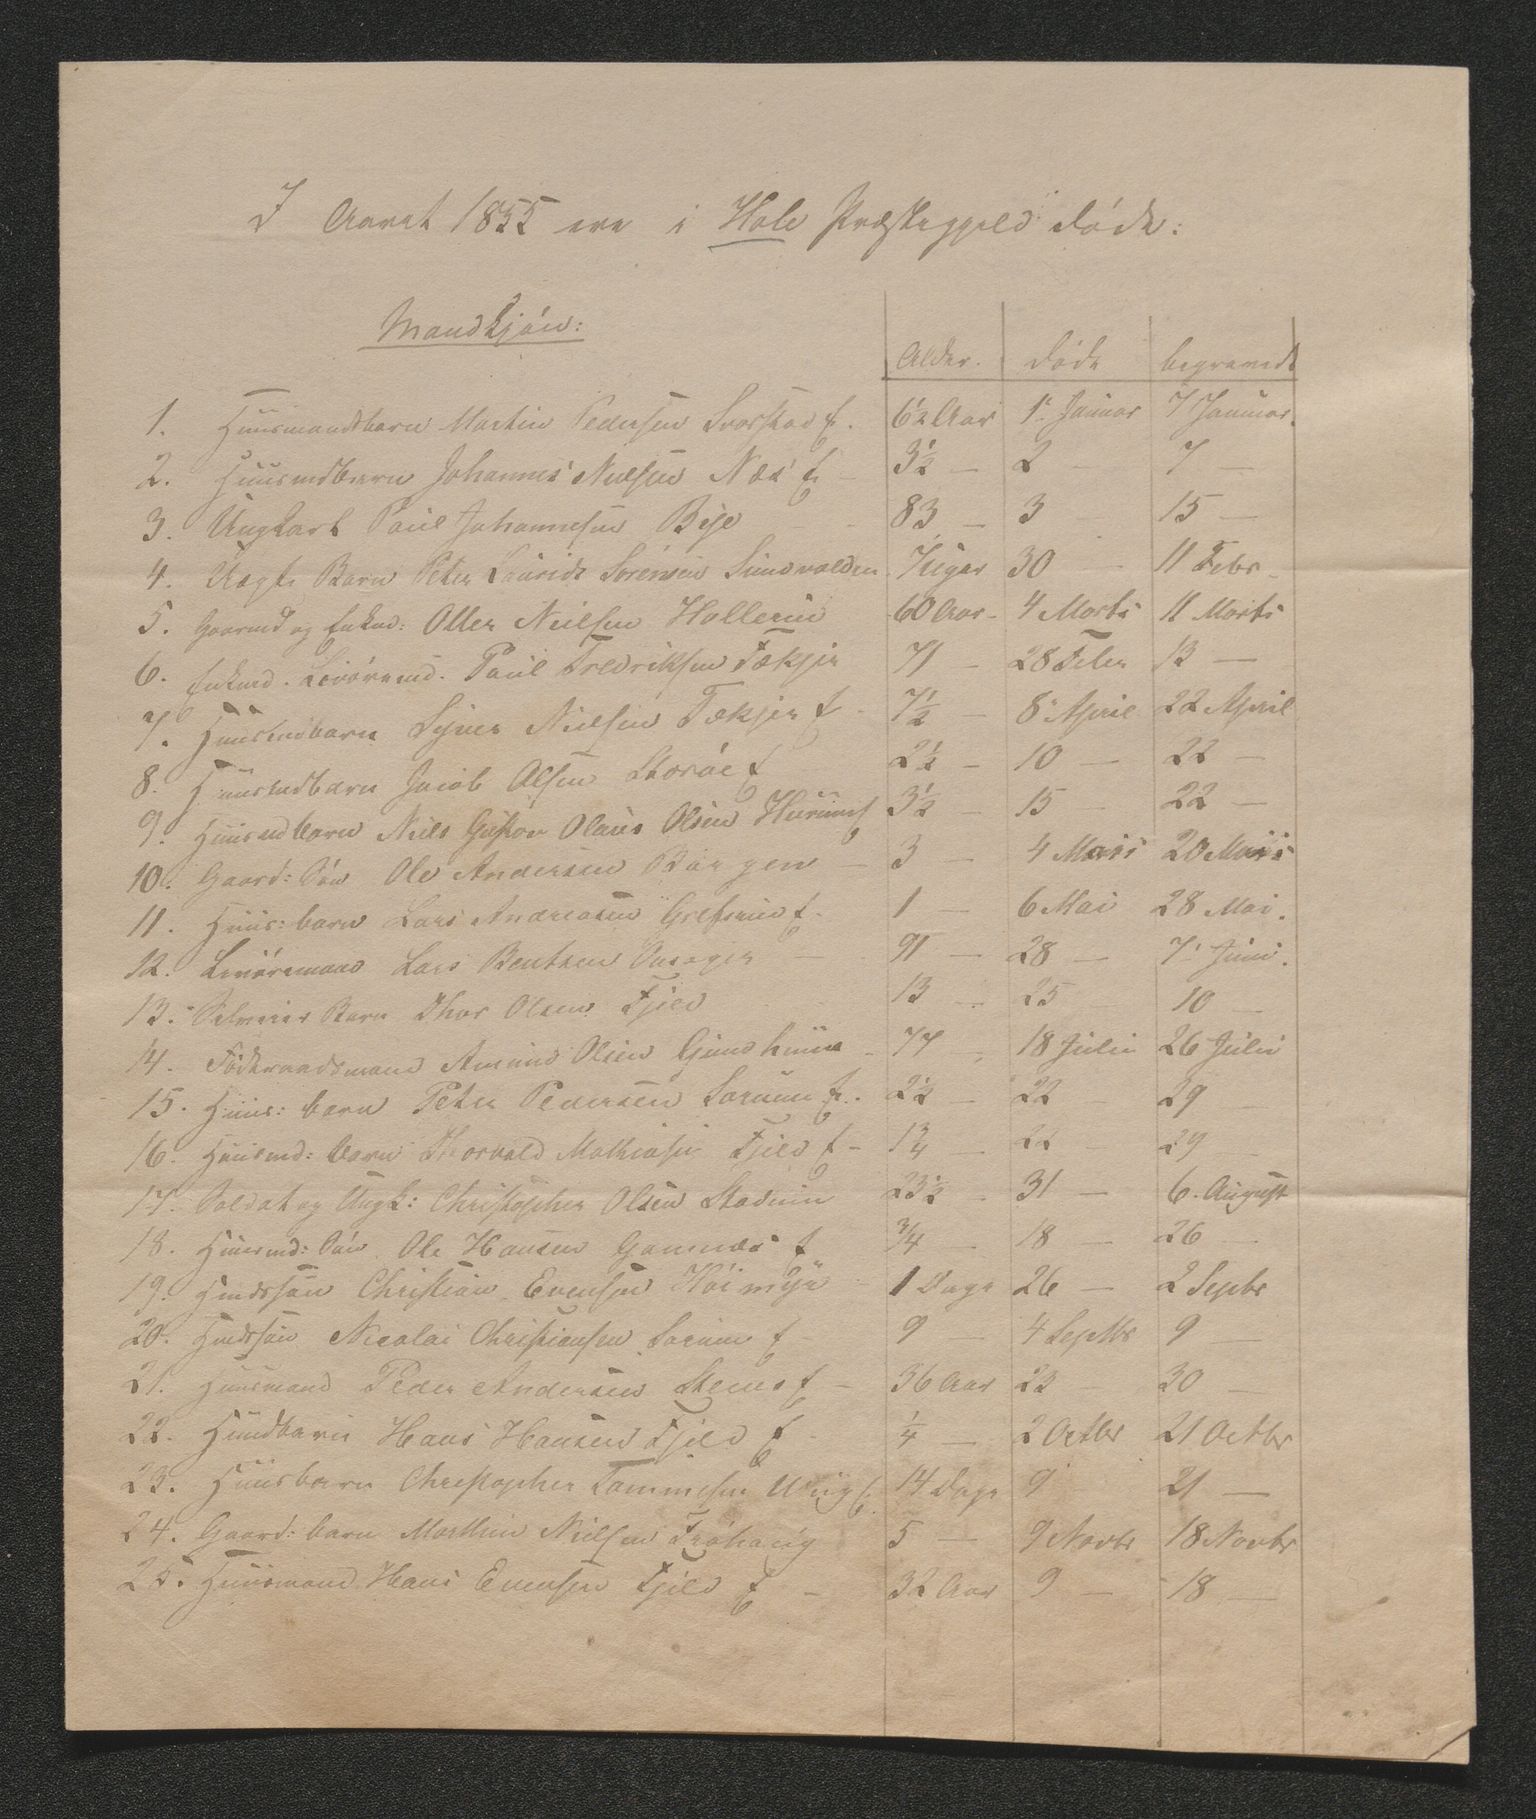 I Aaret 1855 ere i Hole Præstegjeld døde:
Mandkjøn:
Alder. døde begravedt
1. Huusmandsbarn Martin Pedersen Svarstad E. 6½ Aar 1. Januar 7 Januar.
2. Huusmdbarn Johannes Nielsen Næs E 3½ — 2 — 7 —
3. Ungkarl Paul Johannesen Bye 83 — 3 — 15 —
4. Uægte Barn Peter Laurids Sørensen Sundvolden 7 Uger 30 — 11 Febr.
5. Gaardmd og Enkmd: Nielsen 60 Aar 4 Marts 11 Marts
6. Enkmd. Paul Fredriksen 71 — 28 Feber 13 —
7. Huusmdbarn Syver Nielsen E 7½ — 8 April 22 April
8. Huusmdbarn Jacob Olsen Storøe E 2½ — 10 — 22 —
9. Huusmdbarn Niels Gustav Olaus Olsen 3½ — 15 — 22 —
10. Gaard: Søn Ole Andersen 3 — 4 Maii 20 Maii
11. Huus: barn Lars Andreasen Grefsrud E. 1 — 6 Mai 28 Mai.
12. Lars Bentsen Onsager — 91 — 28 — 7 Juni.
13. Barn Thor Olsen Fjeld 13 — 25 — 10 —
14. Föderaadsmand Amund Olsen 77 — 18 Julii 26 Julii
15. Huus: barn Peter Pedersen Sørum E. 2½ — 22 — 29 —
16. Huusmd: barn Thorvald Mathiesen Fjeld E — 1¾ — 22 — 29 —
17. Soldat og Ungk: Christopher Olsen Stadum 23½ — 31 — 6. August
18. Huusmd: Søn Ole Hansen Gomnæs E ¾ — 18 — 26 —
19. Hmdssøn Christian Evensen Høimyr 1 Dage 26 — 2 Septbr
20. Hmdssøn Nicolai Christiansen Sørum E 9 — 4 Septbr 9 —
21. Huusmand Peder Andersen E — 36 Aar 23 — 30 —
22. Hmdbarn Hans Hansen Fjeld E ¼ — 2 Octbr 21 Octbr
23. Huusbarn Christopher E 14 Dage 9 21 —
24. Gaard: barn Marthin Nielsen Frøhaug 5 — 9 Novbr 18 Novbr
25. Huusmand Hans Evensen Fjeld E — 32 Aar 9 — 18 —